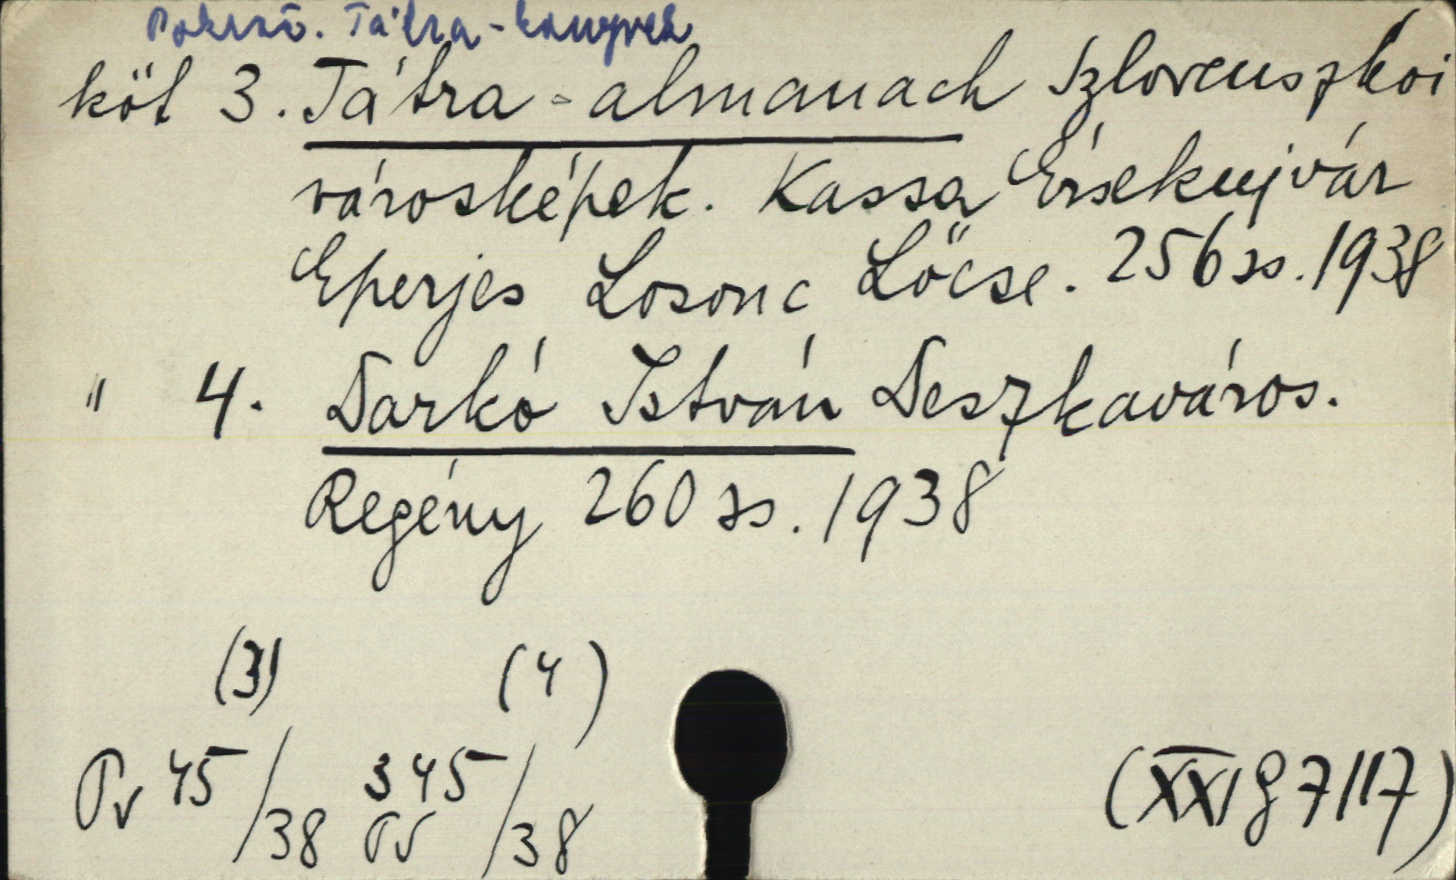 Tátra-könyvek
köt 3. Tátra-almanach Szlovenszkoi
városképek. Kassa Érsekujvár
Eperjes Losonc Lőcse. 256 ss. 1938
" 4. Darkó István Deszkaváros.
Regény 260 ss. 1938
(3) (4)
Pv 45/38 345 Pv/38
(XXI g 7/17)